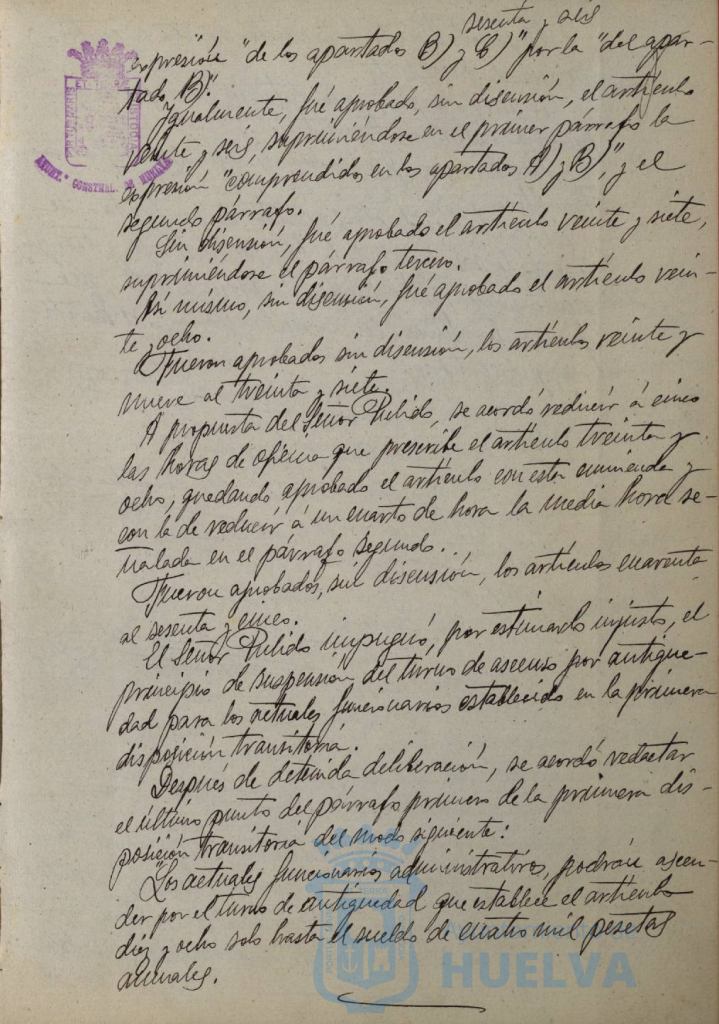 sesenta y seis
expresión "de los apartados B) y C)" por la "del apar-
tado B)".
Igualmente, fué aprobado, sin discusión, el artículo
veinte y seis, suprimiéndose en el primer párrafo la
expresión "comprendidos en los apartados A) y B)", y el
segundo párrafo.
Sin discusión, fué aprobado el artículo veinte y siete,
suprimiéndose el párrafo tercero.
Así mismo, sin discusión, fué aprobado el artículo vein-
te y ocho.
Fueron aprobados sin discusión, los artículos veinte y
nueve al treinta y siete.
A propuesta del Señor Pulido, se acordó reducir á cinco
las horas de oficina que prescribe el artículo treinta y
ocho, quedando aprobado el artículo con esta enmienda y
con la de reducir á un cuarto de hora la media hora se-
ñalada en el párrafo segundo.
Fueron aprobados, sin discusión, los artículos cuarenta
al sesenta y cinco.
El Señor Pulido impugnó, por estimarlo injusto, el
principio de suspensión del turno de ascenso por antigue-
dad para los actuales funcionarios establecido en la primera
disposición transitoria.
Después de detenida deliberación, se acordó redactar
el último punto del párrafo primero de la primera dis-
posición transitoria del modo siguiente:
"Los actuales funcionarios administrativos, podrán ascen-
der por el turno de antigüedad que establece el artículo
diez y ocho solo hasta el sueldo de cuatro mil pesetas
anuales.
HUELVA